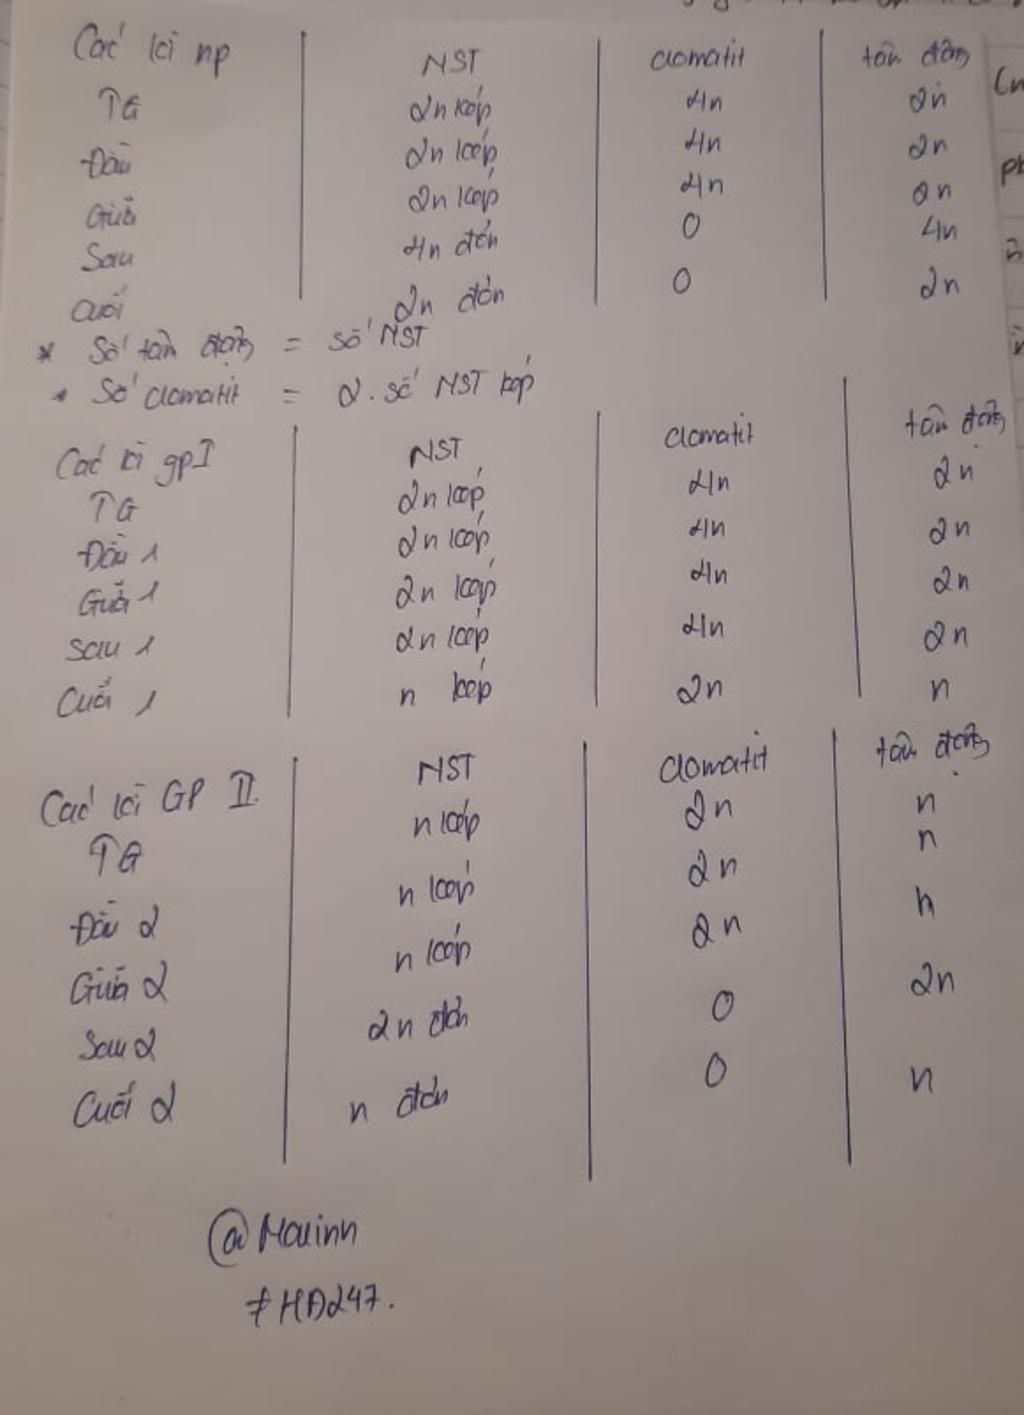 Các kì np | NST | clomatit | tâm động
TG | 2n kép | 4n | 2n
Đầu | 2n kép | 4n | 2n
Giữa | 2n kép | 4n | 2n
Sau | 4n đơn | 0 | 4n
Cuối | 2n đơn | 0 | 2n
* Số tâm động = số NST
* Số clomatit = 2. số NST kép
Các kì gp I | NST | clomatit | tâm động
TG | 2n kép | 4n | 2n
Đầu 1 | 2n kép | 4n | 2n
Giữa 1 | 2n kép | 4n | 2n
Sau 1 | 2n kép | 4n | 2n
Cuối 1 | n kép | 2n | n
Các kì GP II | NST | clomatit | tâm động
TG | n kép | 2n | n
Đầu 2 | n kép | 2n | n
Giữa 2 | n kép | 2n | n
Sau 2 | 2n đơn | 0 | 2n
Cuối 2 | n đơn | 0 | n
#HĐ247.